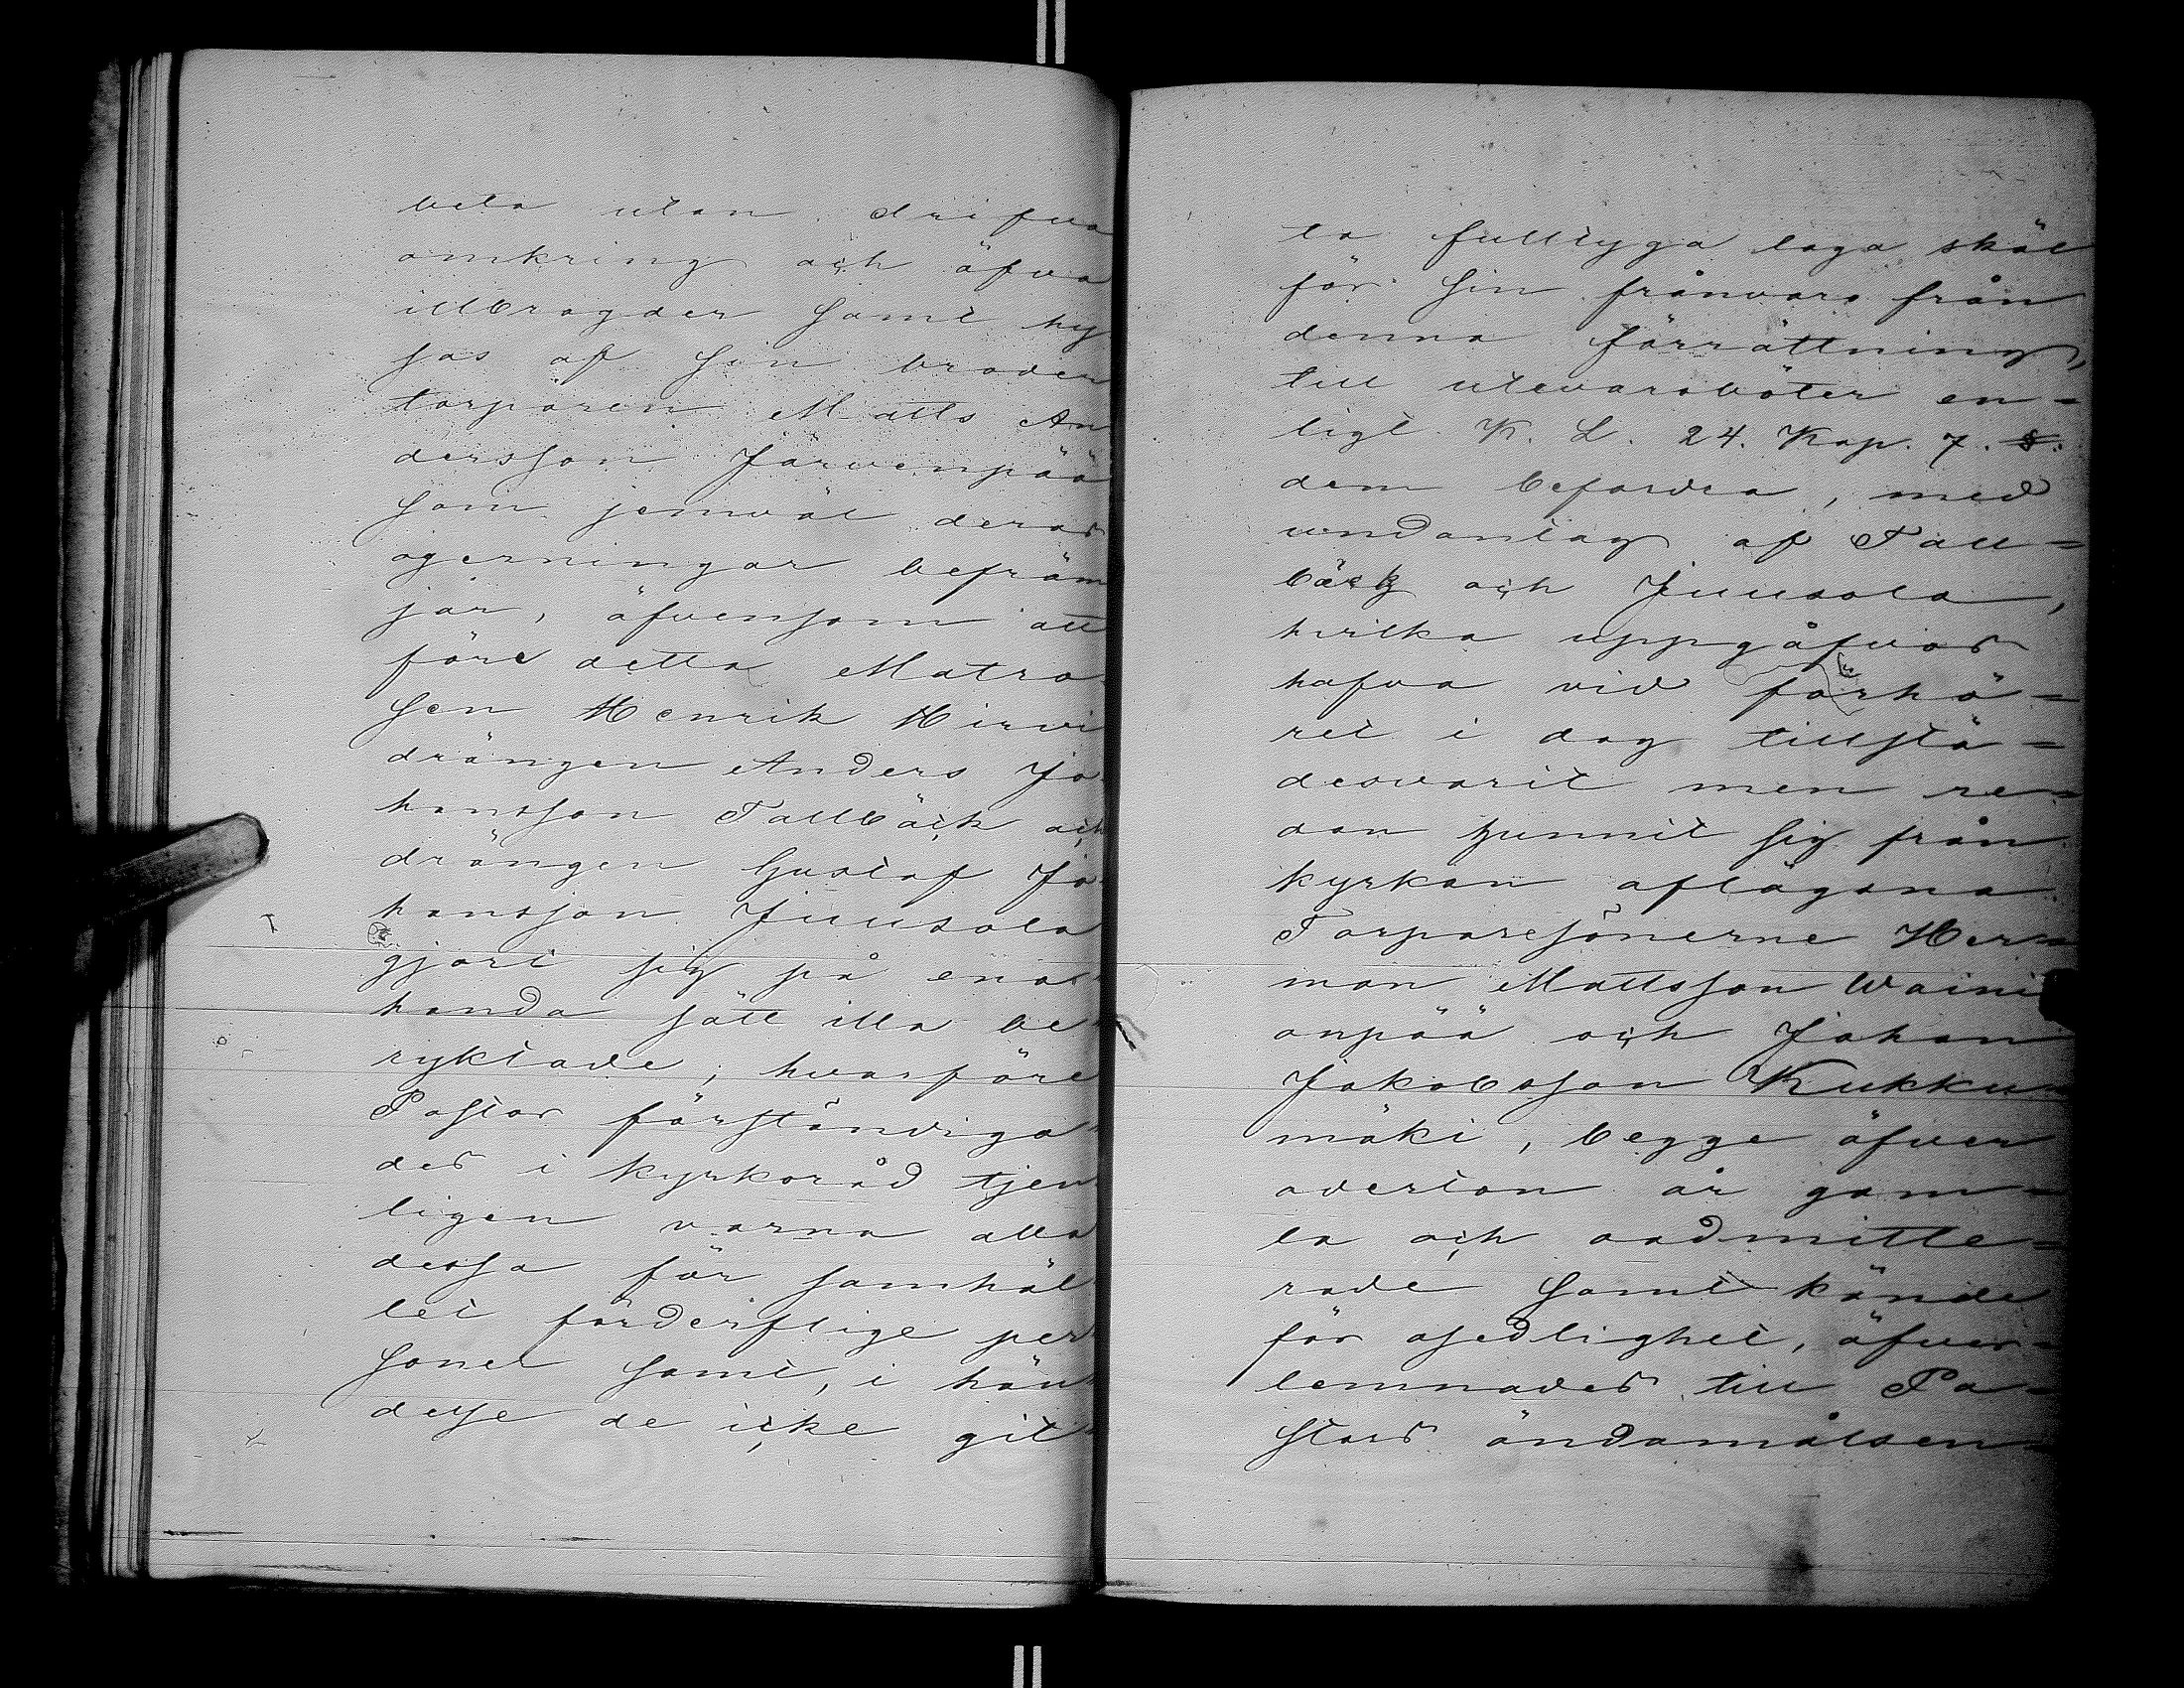 beta utan drifva
omkring och öfva
illbragder samt hy
sas af sin broder
torparen Matts An
dersson Järvenpää
som jemväl deras
ogerningar befräm
jar, äfvensom att
före detta Matro
sen Henrik Hirvi
drängen Anders Jo
hansson Tallbäck och
drängen Gustaf Jo
hansson Juusola
gjort sig på ena
handa sätt illa be
ryktade; hvarföre
Pastor förständiga
des i kyrkoråd tjen
ligen varna alla
dessa för samhäl
let förderflige per
soner samt, i hän
delse de icke git
la fulltyga laga skäl
för sin frånvaro från
denna förrättning,
till utevarobøter en=
ligt K. L. 24. Kap. 7. §.
dem befordra, med
undantag af Tall=
bäck och Juusola,
hvilka uppgåfvos
hafva vid förhö=
ret i dag tillstä=
desvarit men re=
dan hunnit sig från
kyrkan aflägsna
Torparesönerne Her=
man Mattsson Waini
onpää och Johan
Jakobsson Kukku=
mäki, begge öfver
aderton år gam=
la och oadmitte=
rade samt kände
för osedlighet, öfver=
lemnades till Pa=
stors ändamålsen=